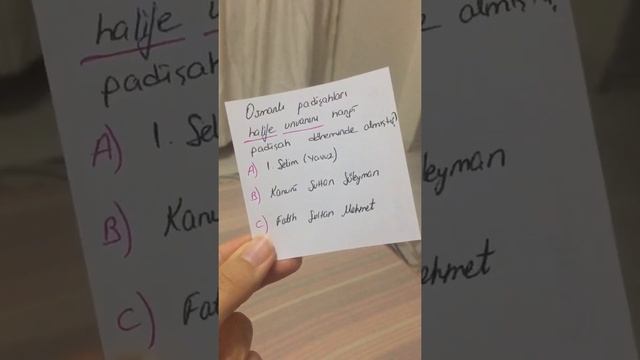 Osmanlı padişahları
halife unvanını hangi
padişah döneminde almıştır?
A) I. Selim (Yavuz)
B) Kanuni Sultan Süleyman
C) Fatih Sultan Mehmet